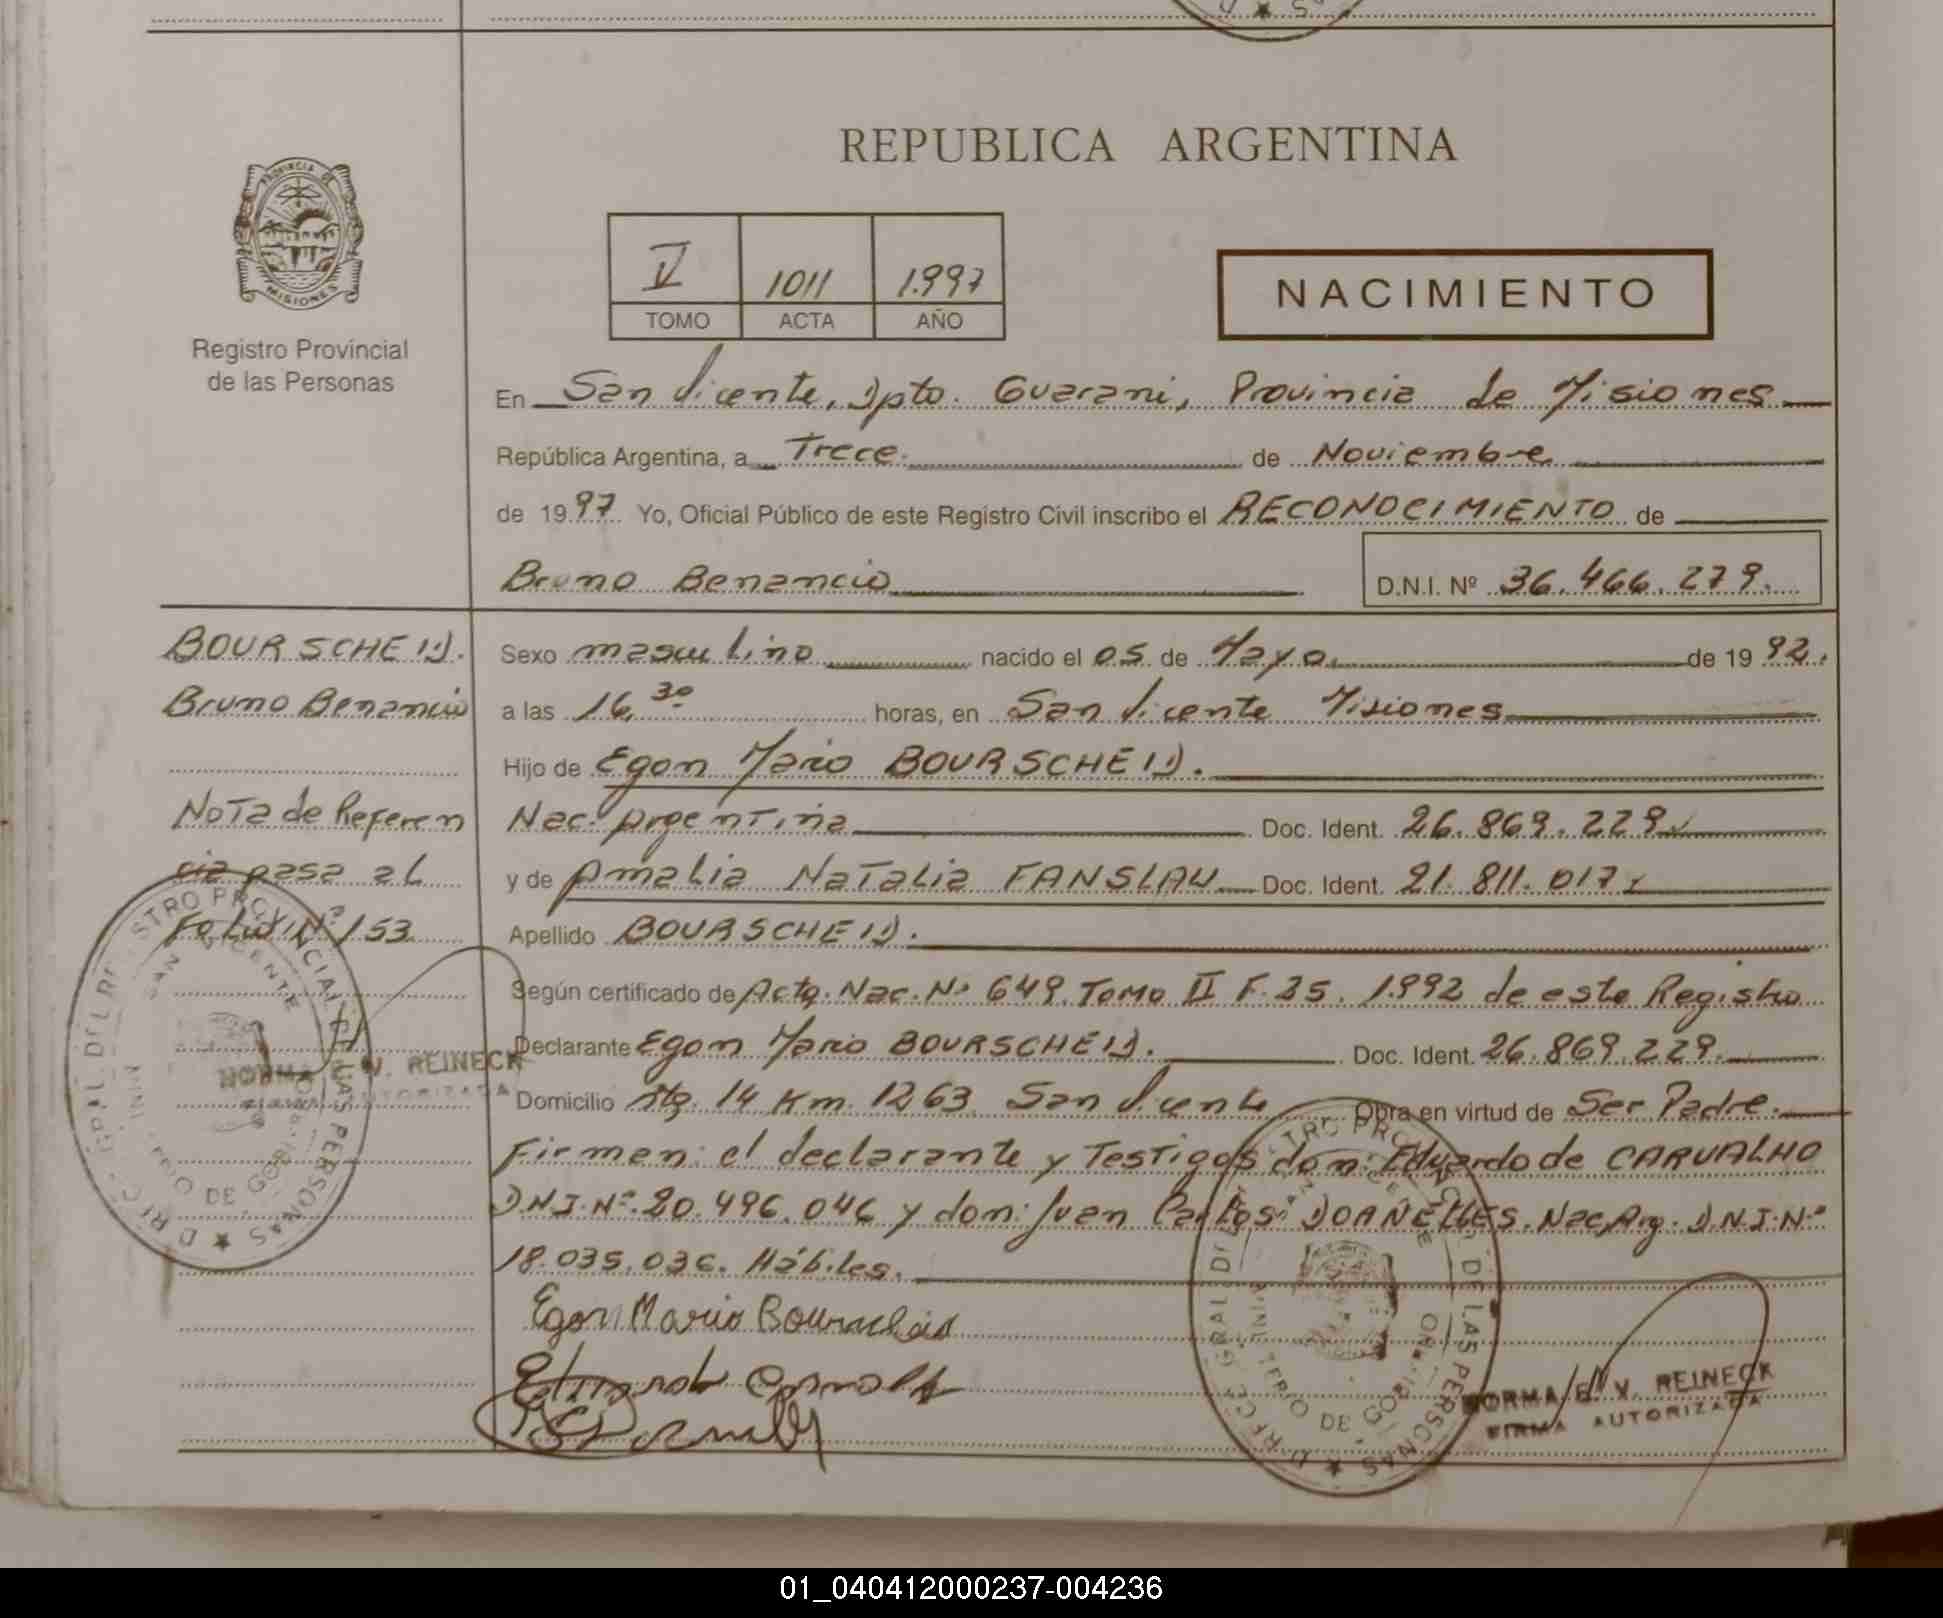 REPUBLICA ARGENTINA
PROVINCIA DE
MISIONES
Registro Provincial
de las Personas
V 1011 1.997
TOMO ACTA AÑO
NACIMIENTO
En San Vicente, Dpto. Guarani, Provincia de Misiones
República Argentina, a Trece. de Noviembre
de 1997 Yo, Oficial Público de este Registro Civil inscribo el RECONOCIMIENTO de
Bruno Benancio D.N.I. Nº 36.466.279.
BOURSCHEID.
Bruno Benancio
Nota de Referen
cia pasa al
Folio Nº 153
Sexo masculino nacido el 05 de Mayo. de 1992.
a las 16,30 horas, en San Vicente Misiones
Hijo de Egon Mario BOURSCHEID.
Nac. Argentina Doc. Ident. 26.869.229
y de Amalia Natalia FANSLAU Doc. Ident. 21.811.017
Apellido BOURSCHEID.
Según certificado de Acta. Nac. Nº 649. Tomo II F. 25. 1.992 de este Registro
Declarante Egon Mario BOURSCHEID. Doc. Ident. 26.869.229.
Domicilio Rta. 14 Km. 1263 San Vicente Obra en virtud de Ser Padre.
Firman: el declarante y Testigos don: Eduardo de CARVALHO
D.N.I.Nº. 20.496.046 y don: Juan Carlos DORNELLES. Nac. Arg. D.N.I.Nº
18.035.036. Hábiles.
Egon Mario Bourscheid
NORMA E. V. REINECK
FIRMA AUTORIZADA
NORMA E. V. REINECK
FIRMA AUTORIZADA
01_040412000237-004236